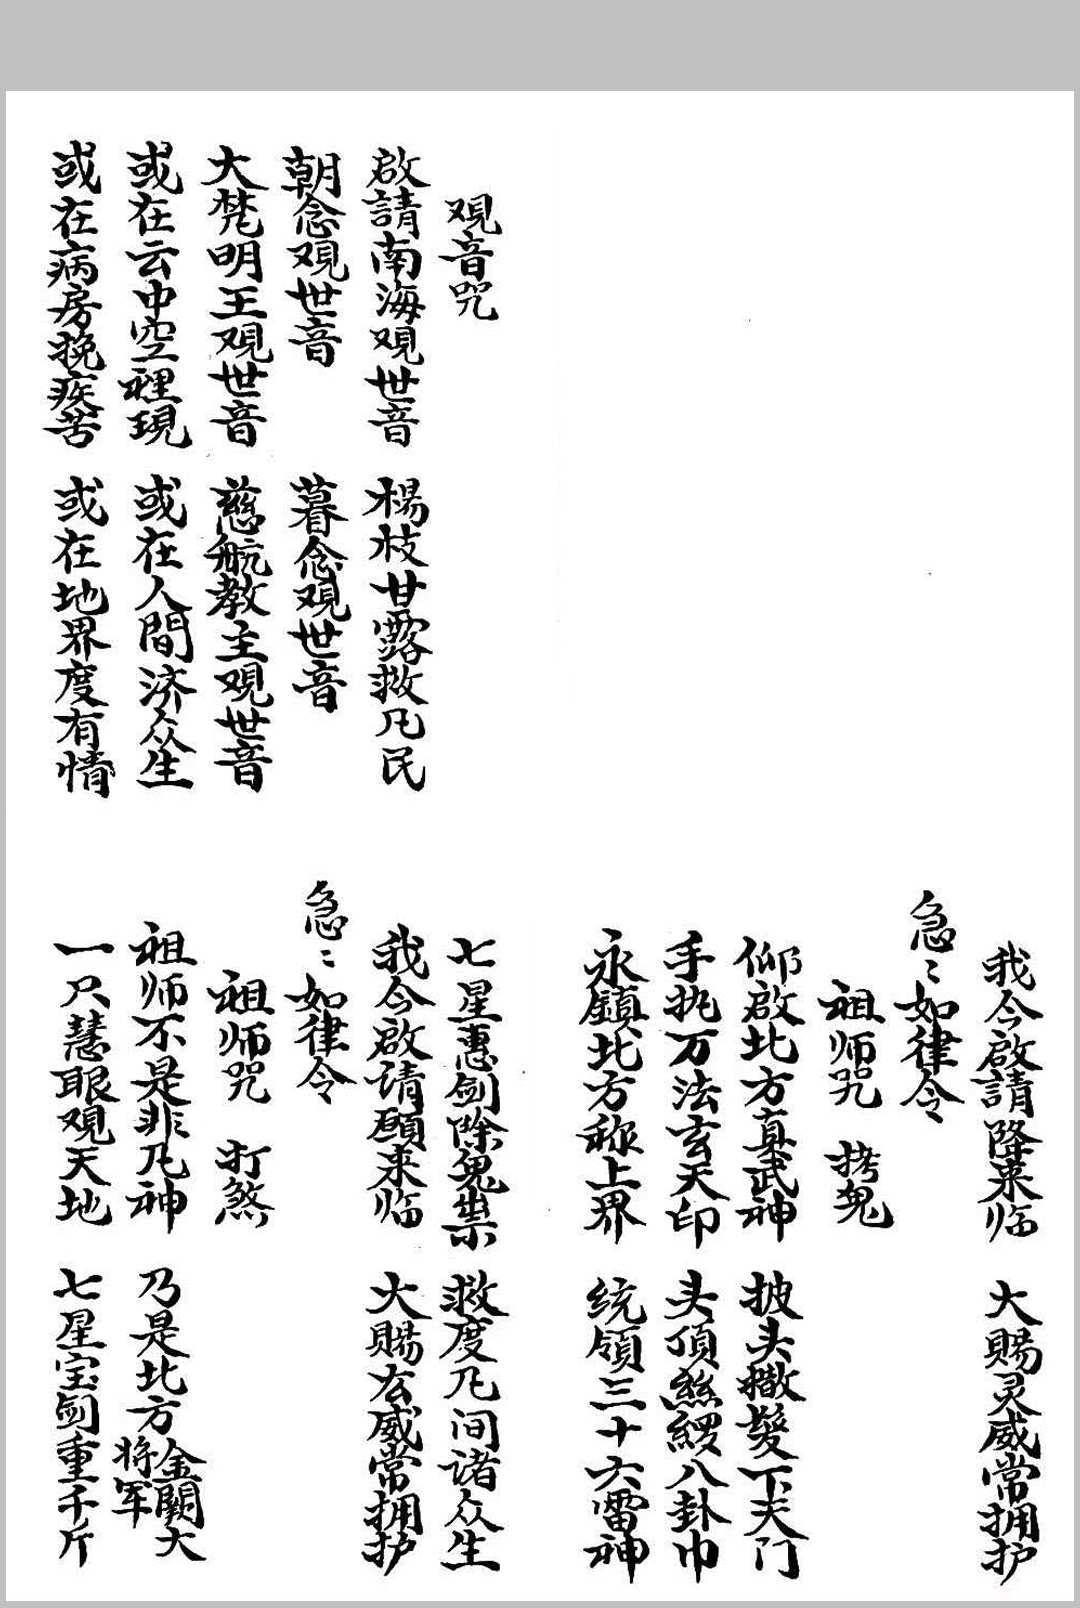 观音咒
啟請南海观世音 楊枝甘露救凡民
朝念观世音 暮念观世音
大梵明王观世音 慈航教主观世音
或在云中空裡現 或在人間济众生
或在病房挽疾苦 或在地界度有情
我今啟請降来临 大赐灵威常拥护
急〻如律令
祖师咒 拷鬼
仰啟北方真武神 披头撒髮下天门
手执万法玄天印 头頂絲縲八卦巾
永鎮北方称上界 统領三十六雷神
七星惠剑除鬼祟 救度凡间诸众生
我今啟请願来临 大赐玄威常拥护
急〻如律令
祖师咒 打煞
祖师不是非凡神 乃是北方金闕大将军
一尺慧眼观天地 七星宝剑重千斤